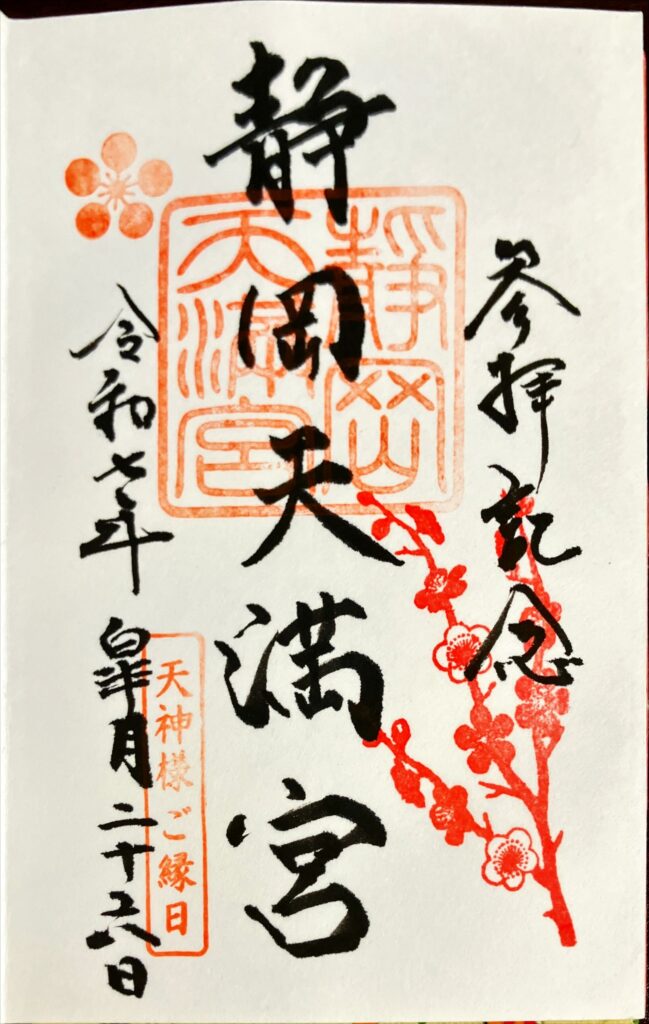 参拝記念
静岡天満宮
静岡
天満宮
令和七年皐月二十六日
天神様ご縁日